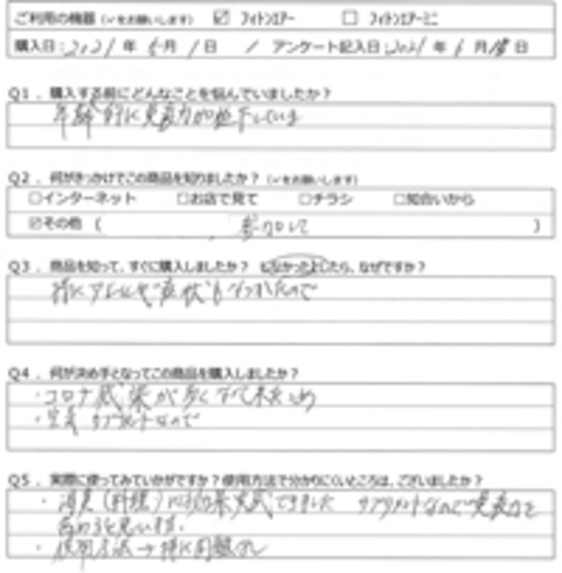 ご利用の機器（✓をお願いします） ☑ フィトンエアー □ フィトンエアーミニ
購入日：2021 年 5月 1日 / アンケート記入日：2021 年 6月18日
Q1．購入する前にどんなことを悩んでいましたか？
年齢的に免疫力が低下している
Q2．何がきっかけでこの商品を知りましたか？（✓をお願いします）
□インターネット □お店で見て □チラシ □知合いから
☑その他（ 参加して ）
Q3．商品を知って、すぐに購入しましたか？ しなかったとしたら、なぜですか？
特にアレルギー症状もなかったので
Q4．何が決め手となってこの商品を購入しましたか？
・コロナ感染が多く
・空気 サプリメントなので
Q5．実際に使ってみていかがですか？使用方法で分かりにくいところは、ございましたか？
・消臭（料理）には効果実感できました サプリメントなので免疫力を
高めると思います。
・使用方法→特に問題なし